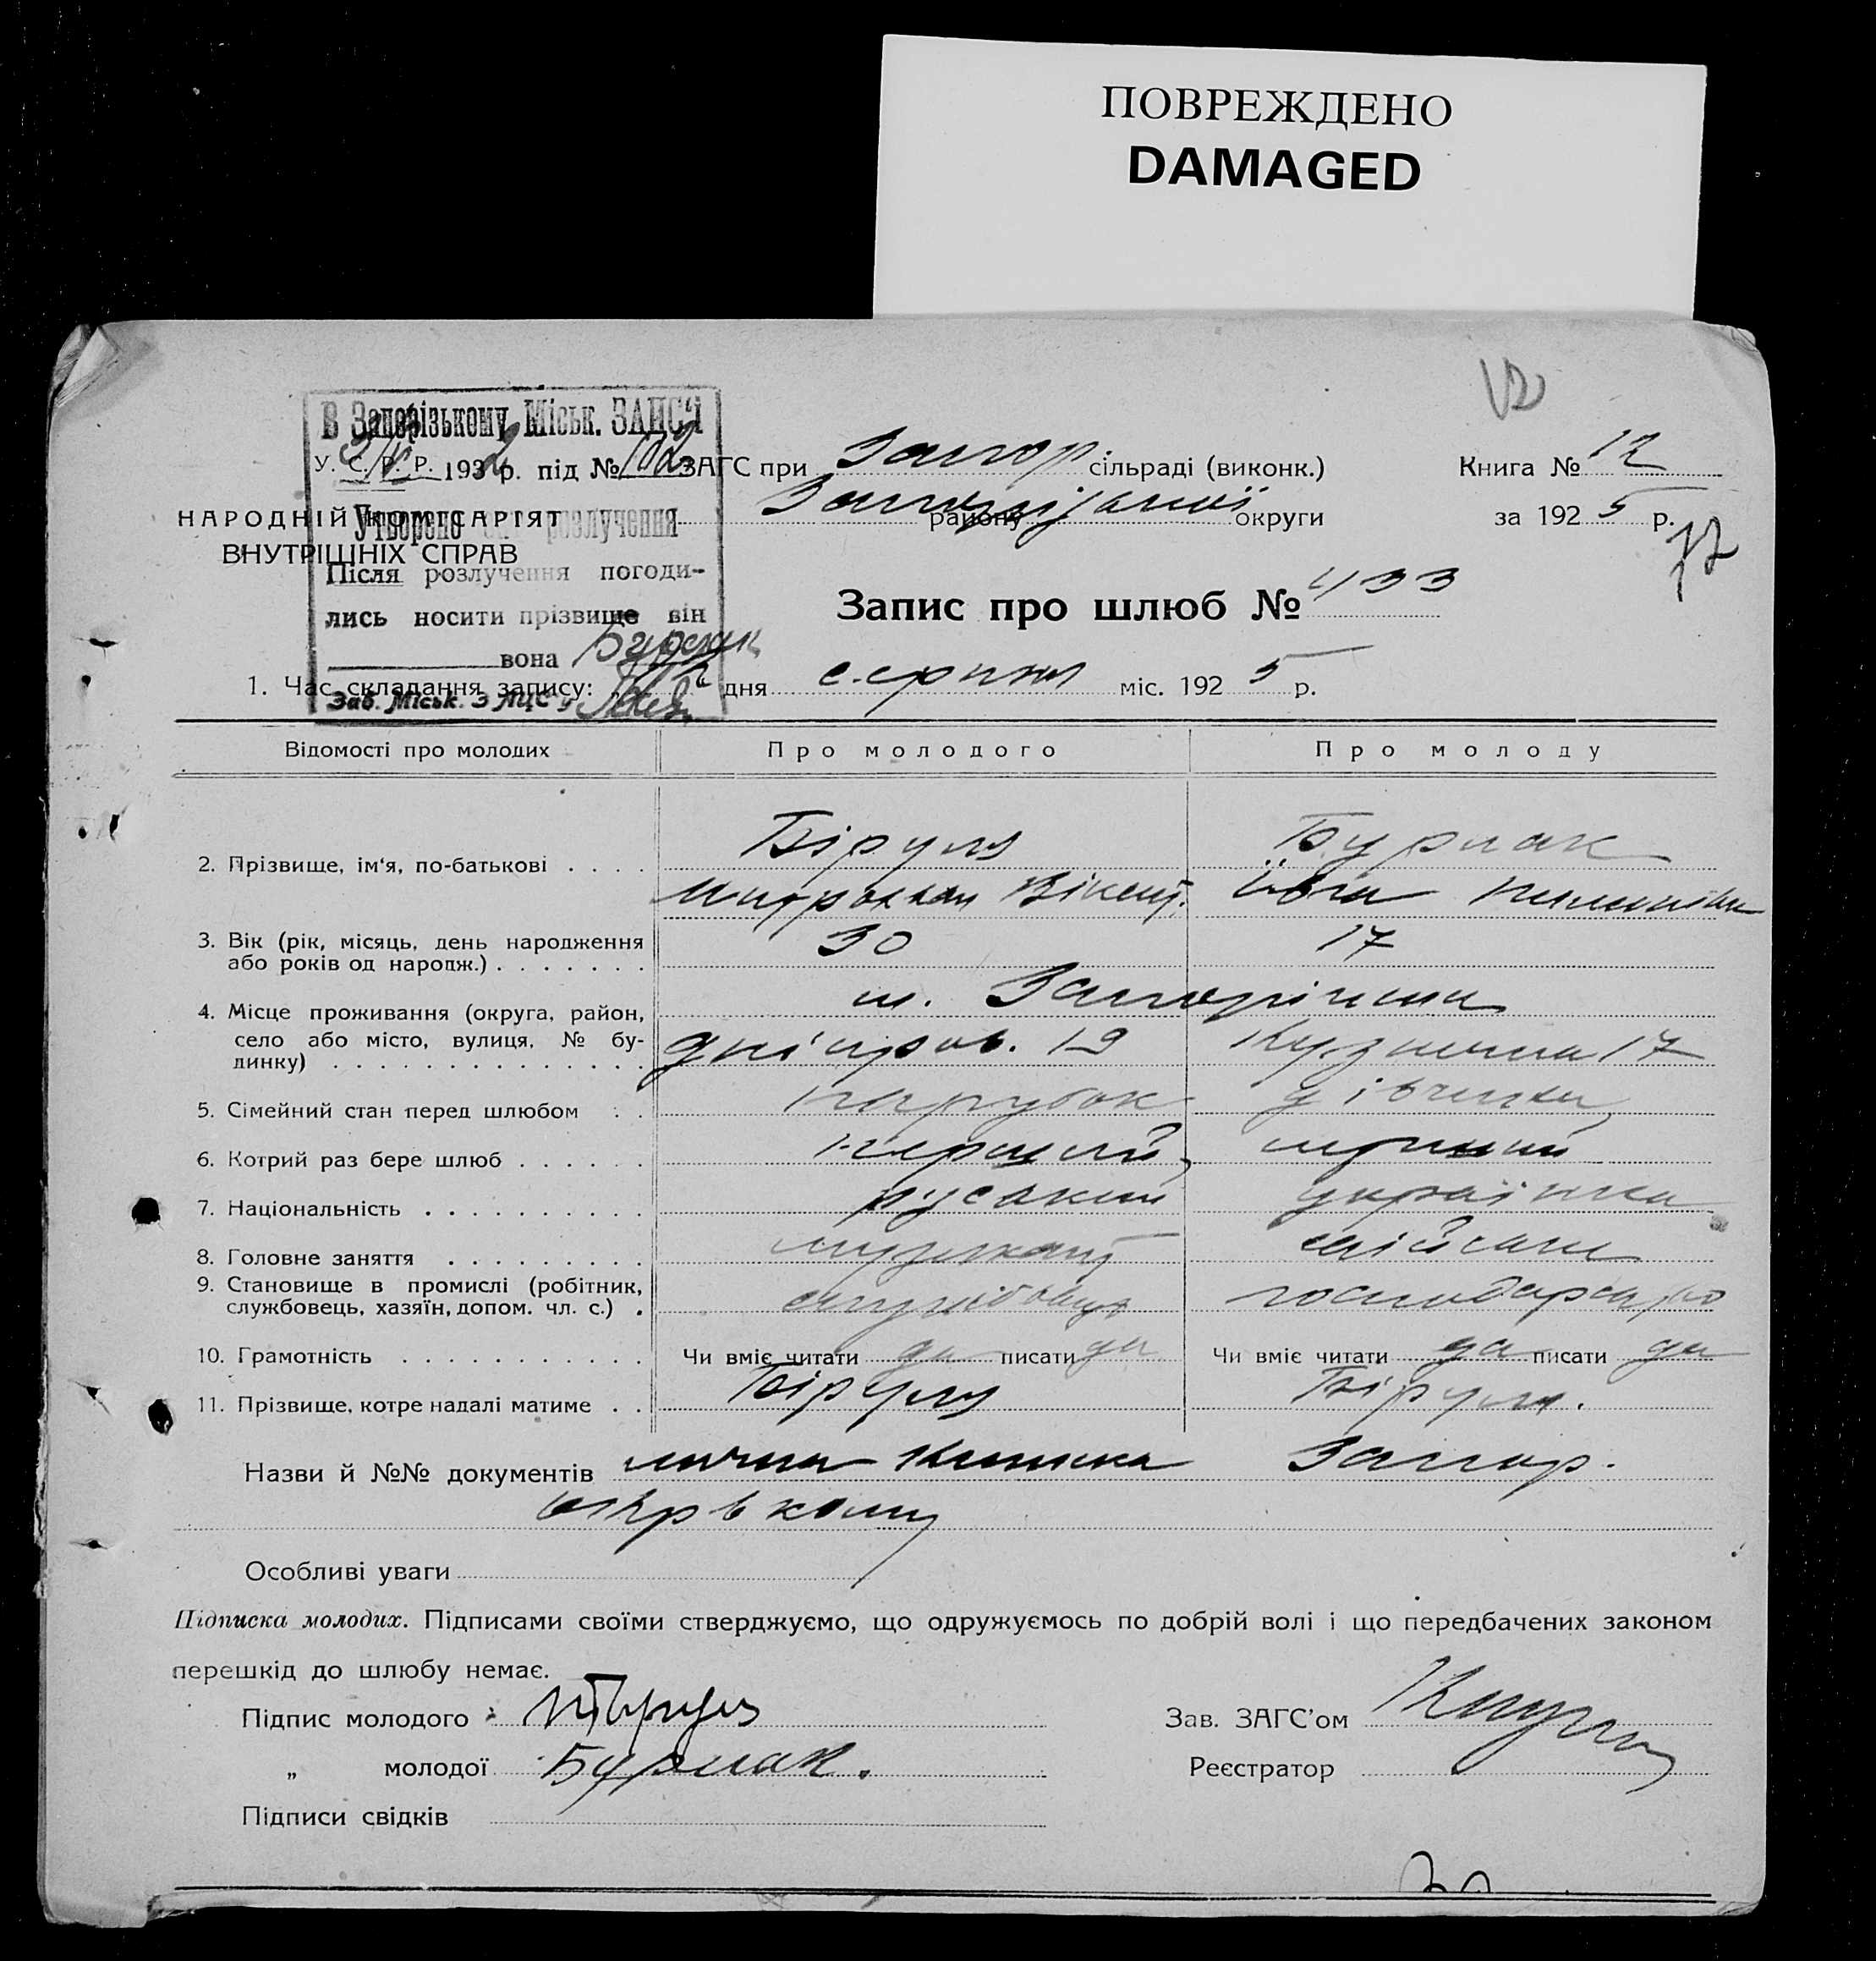 ПОВРЕЖДЕНО
DAMAGED
В Запорізькому Міськ. ЗАЦС'і
У. С. Р. Р. 1932 р. під № 102 ЗАГС при Запор. сільраді (виконк.) Книга № 12
НАРОДНІЙ КОМІСАРІЯТ району Запорізької округи за 1925 р.
Утворено розлучення
ВНУТРІШНІХ СПРАВ
Після розлучення погоди-
лись носити прізвище він
Запис про шлюб № 433
вона Бурлак
1. Час складання запису: дня серпня міс. 1925 р.
Зав. Міськ. ЗАЦС'у
Відомості про молодих Про молодого Про молоду
2. Прізвище, ім'я, по-батькові . . . . Біруля Бурлак
Митрофан Вікент.
3. Вік (рік, місяць, день народження 30 17
або років од народж.) . . . . . . .
м. Запоріжжя
4. Місце проживання (округа, район,
село або місто, вулиця, № бу- Дніпров. 19 Кузнечна 17
динку) . . . . . . . . . . . . . .
5. Сімейний стан перед шлюбом . . парубок дівчина
6. Котрий раз бере шлюб . . . . . . перший перший
7. Національність . . . . . . . . . . руський українка
8. Головне заняття . . . . . . . . . музикант
9. Становище в промислі (робітник, службовець
службовець, хазяїн, допом. чл. с.) .
10. Грамотність . . . . . . . . . . . Чи вміє читати да писати да Чи вміє читати да писати да
11. Прізвище, котре надалі матиме . . Біруля Біруля.
Назви й №№ документів Запор.
Особливі уваги
Підписка молодих. Підписами своїми стверджуємо, що одружуємось по добрій волі і що передбачених законом
перешкід до шлюбу немає.
Підпис молодого Зав. ЗАГС'ом
„ молодої Бурлак. Реєстратор
Підписи свідків